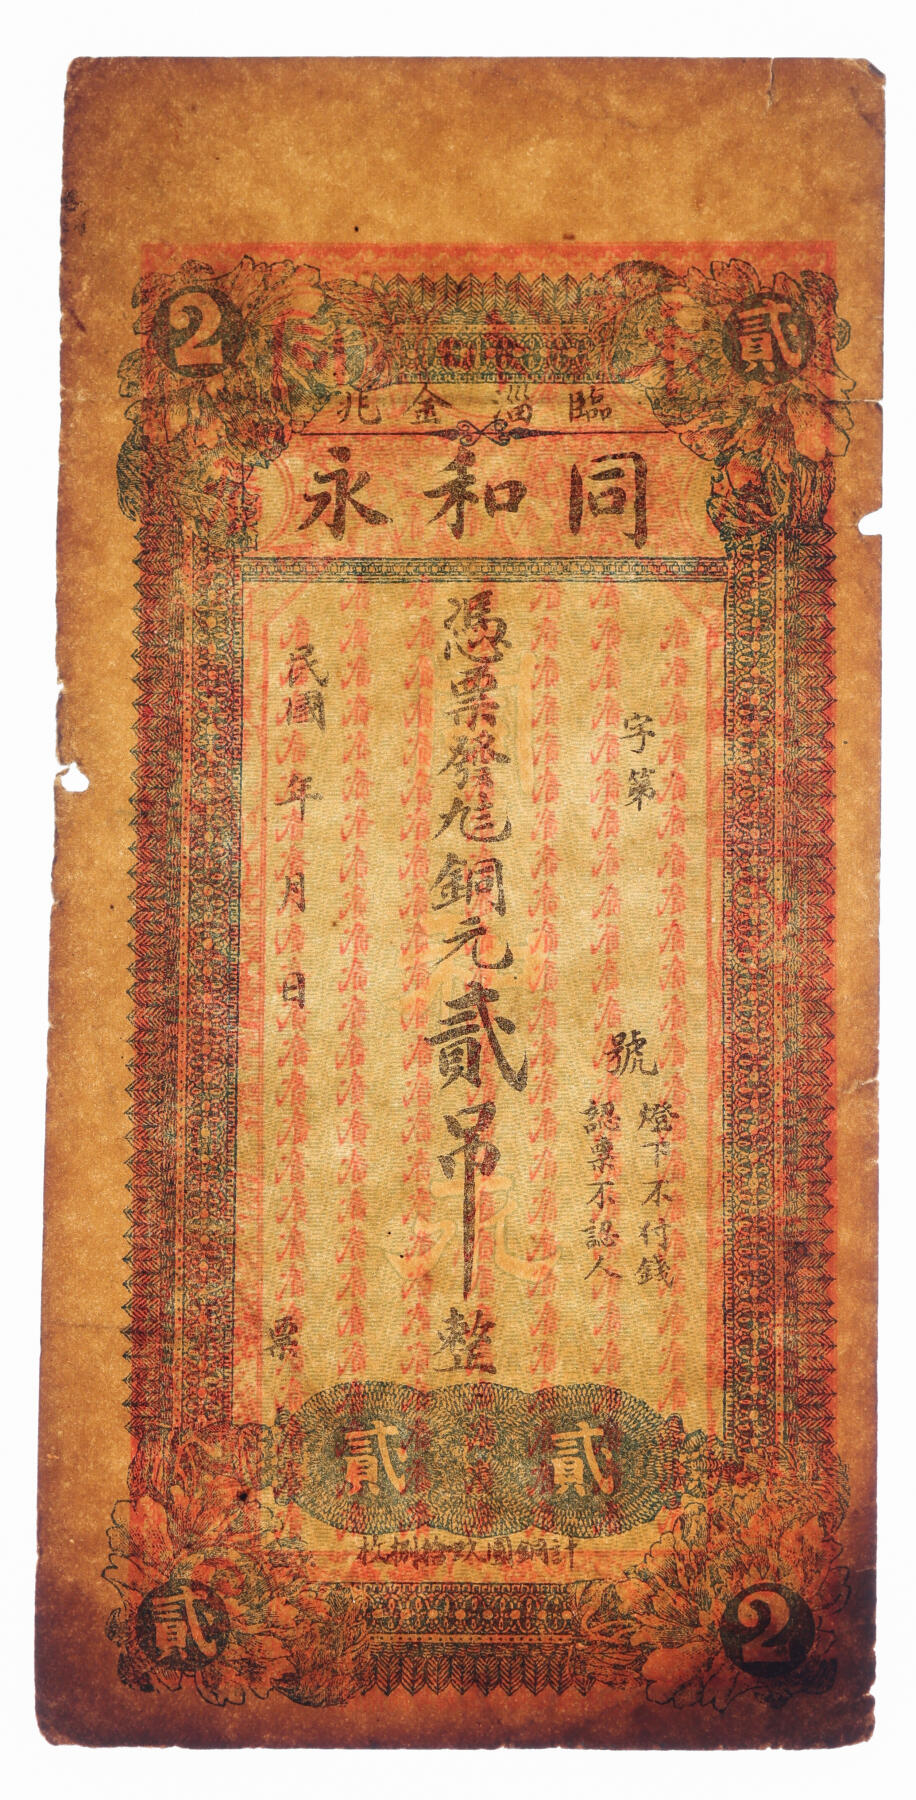 2 貳
臨淄金兆
同和永
字第 號
燈下不付錢
認票不認人
憑票發兌銅元貳吊整
民國 年 月 日
票
貳 貳
計銅圓玖拾捌枚
貳 2